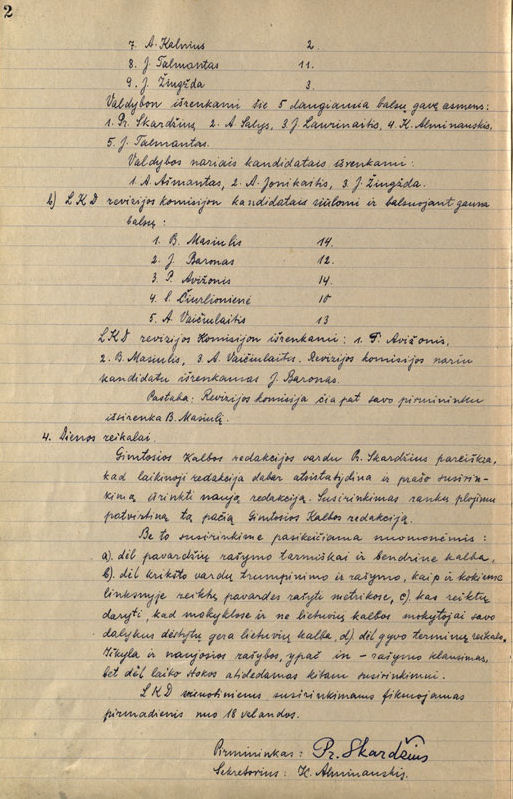 2
7. A. Kalnius 2.
8. J. Talmantas 11.
9. J. Žiugžda 3.
Valdybon išrenkami šie 5 daugiausia balsų gavę asmens:
1. Pr. Skardžius, 2. A. Salys, 3. J. Laurinaitis, 4. K. Alminauskis,
5. J. Talmantas.
Valdybos nariais kandidatais išrenkami:
1. A. Ašmantas, 2. A. Jonikaitis, 3. J. Žiugžda.
b) LKD revizijos komisijon kandidatais siūlomi ir balsuojant gauna
balsų:
1. B. Masiulis 14.
2. J. Baronas 12.
3. P. Avižonis 14.
4. S. Čiurlionienė 10
5. A. Vaičiulaitis 13
LKD revizijos Komisijon išrenkami: 1. P. Avižonis,
2. B. Masiulis, 3. A. Vaičiulaitis. Revizijos komisijos nariu
kandidatu išrenkamas J. Baronas.
Pastaba: Revizijos komisija čia pat savo pirmininku
išsirenka B. Masiulį.
4. Dienos reikalai.
Gimtosios Kalbos redakcijos vardu Pr. Skardžius pareiškia,
kad laikinoji redakcija dabar atsistatydina ir prašo susirin-
kimą išrinkti naują redakciją. Susirinkimas rankų plojimu
patvirtina tą pačią Gimtosios Kalbos redakciją.
Be to susirinkime pasikeičiama nuomonėmis:
a). dėl pavardžių rašymo tarmiškai ir bendrine kalba,
b). dėl krikšto vardų trumpinimo ir rašymo, kaip ir kokiame
linksnyje reiktų pavardes rašyti metrikose, c). kas reiktų
daryti, kad mokyklose ir ne lietuvių kalbos mokytojai savo
dalykus dėstytų gera lietuvių kalba, d) dėl gyvo terminų reikalo.
Iškyla ir naujosios rašybos, ypač in - rašymo klausimas,
bet dėl laiko stokos atidedamas kitam susirinkimui.
LKD visuotiniems susirinkimams fiksuojamas
pirmadienis nuo 18 valandos.
Pirmininkas: Pr. Skardžius
Sekretorius: K. Alminauskis.